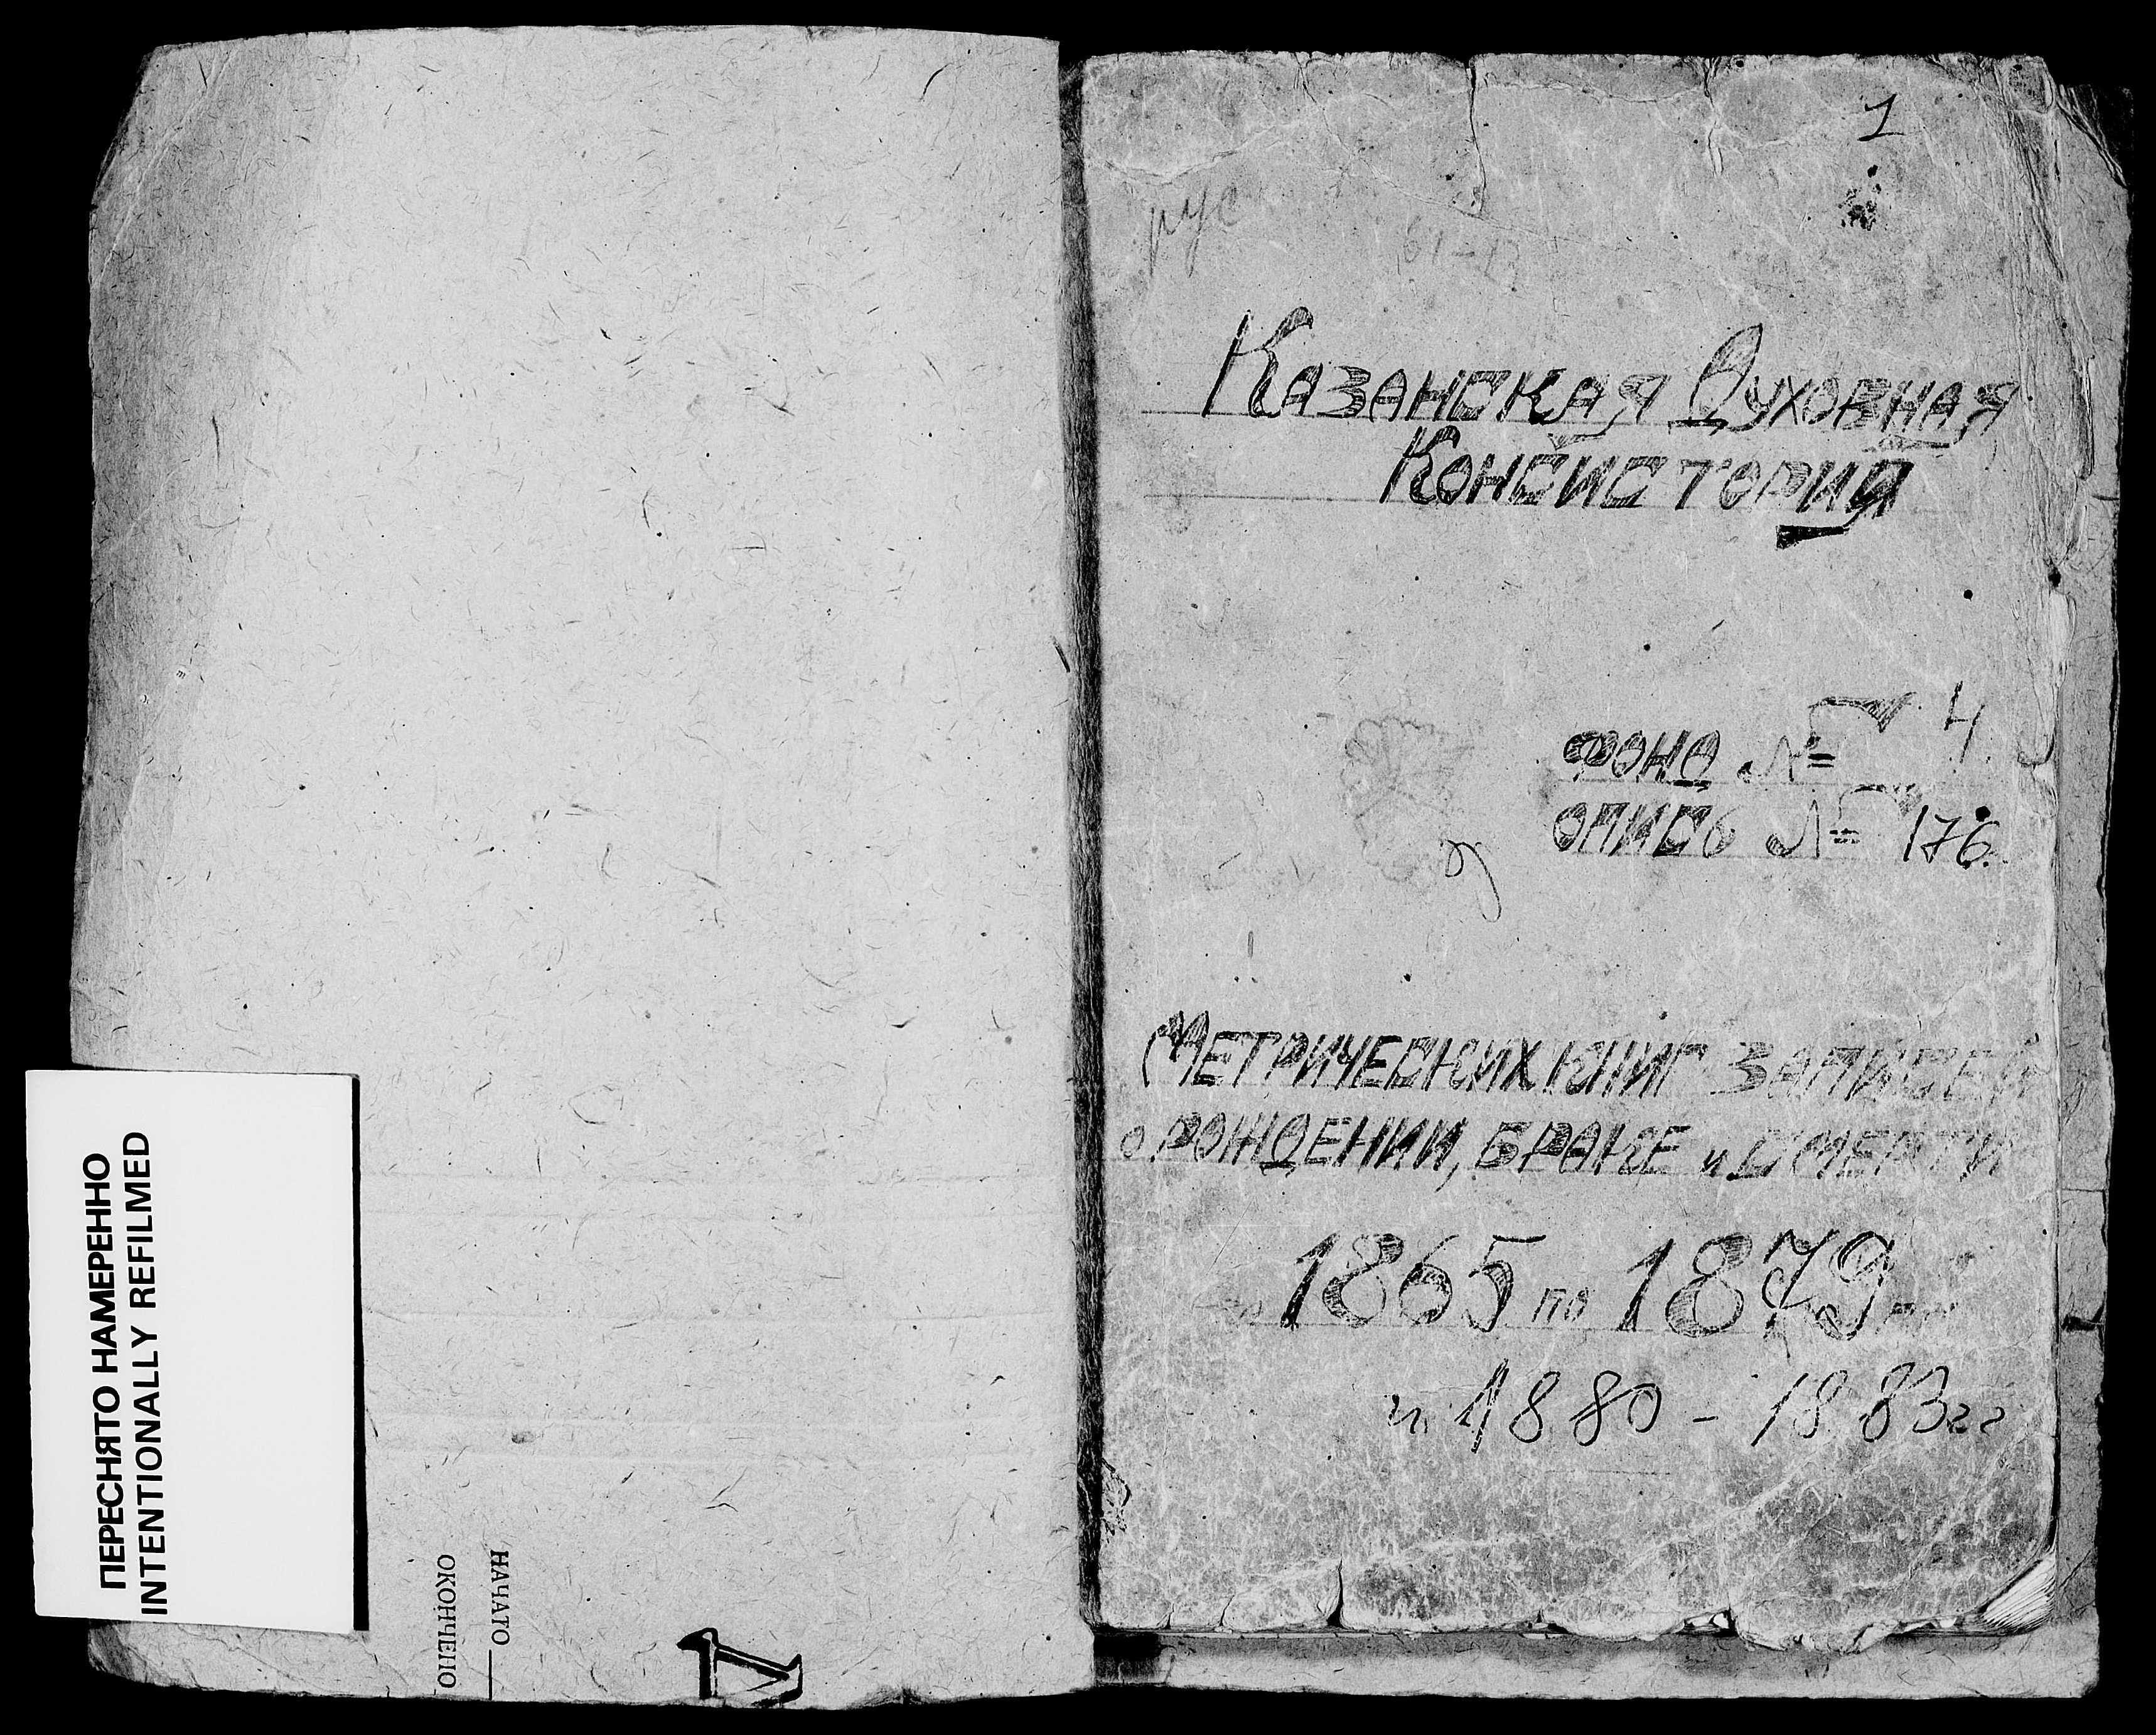 ПЕРЕСНЯТО НАМЕРЕННО
INTENTIONALLY REFILMED
НАЧАТО
ОКОНЧЕНО
Д
1
рус
Казанская Духовная
Консисторий
ФОНД № 4.
ОПИСЬ № 176.
МЕТРИЧЕСКИХ КНИГ ЗАПИСЕЙ
о РОЖДЕНИИ, БРАКЕ и СМЕРТИ
1865 по 1879
и 1880 - 1883 гг